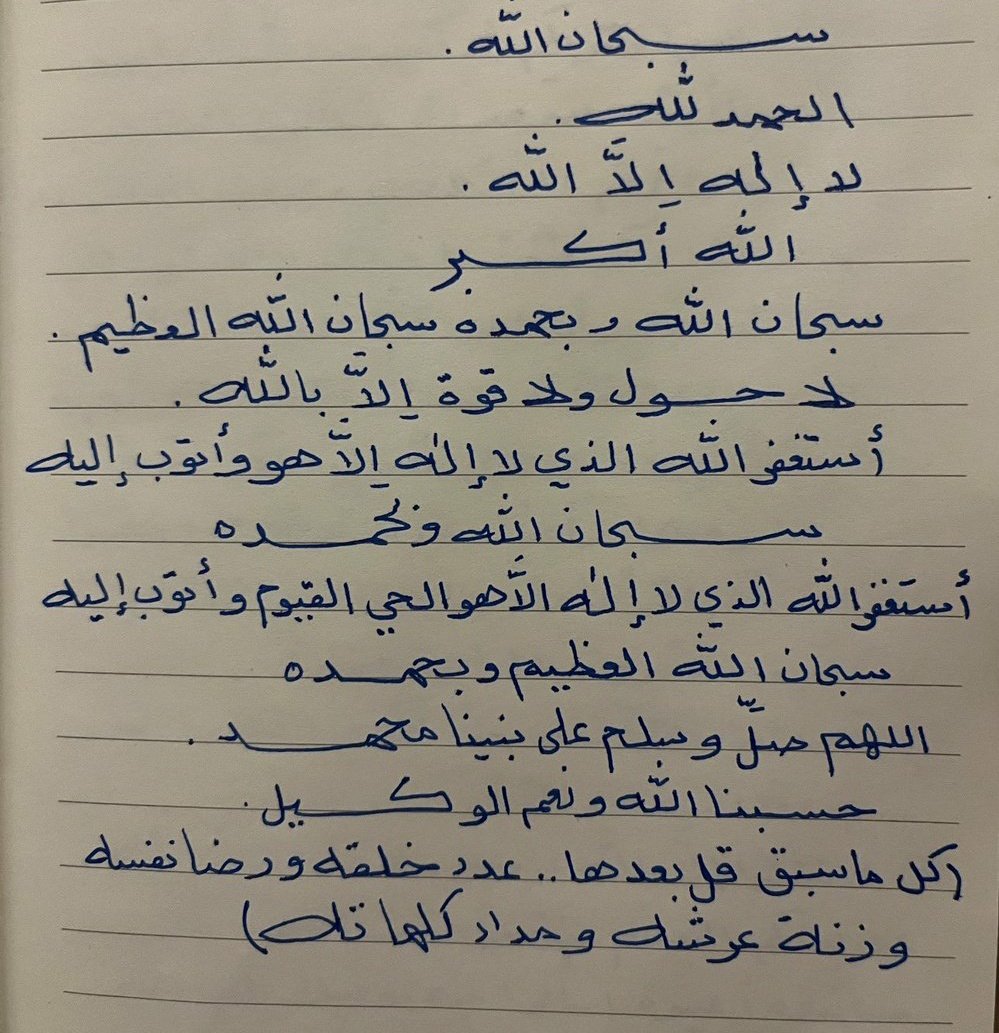 سبحان الله .
الحمد لله .
لا إله إلَّا الله .
الله أكبر
سبحان الله و بحمده سبحان الله العظيم .
لا حول ولا قوة إلاَّ بالله .
أستغفر الله الذي لا إله إلاَّ هو وأتوب إليه
سبحان الله وبحمده
أستغفر الله الذي لا إله الاَّ هو الحي القيوم و أتوب إليه
سبحان الله العظيم وبحمده
اللهم صلِّ وسلم على نبينا محمد .
حسبنا الله ونعم الوكيل .
(كل ما سبق قل بعدها .. عدد خلقه ورضا نفسه
وزنة عرشه و مداد كلماته)